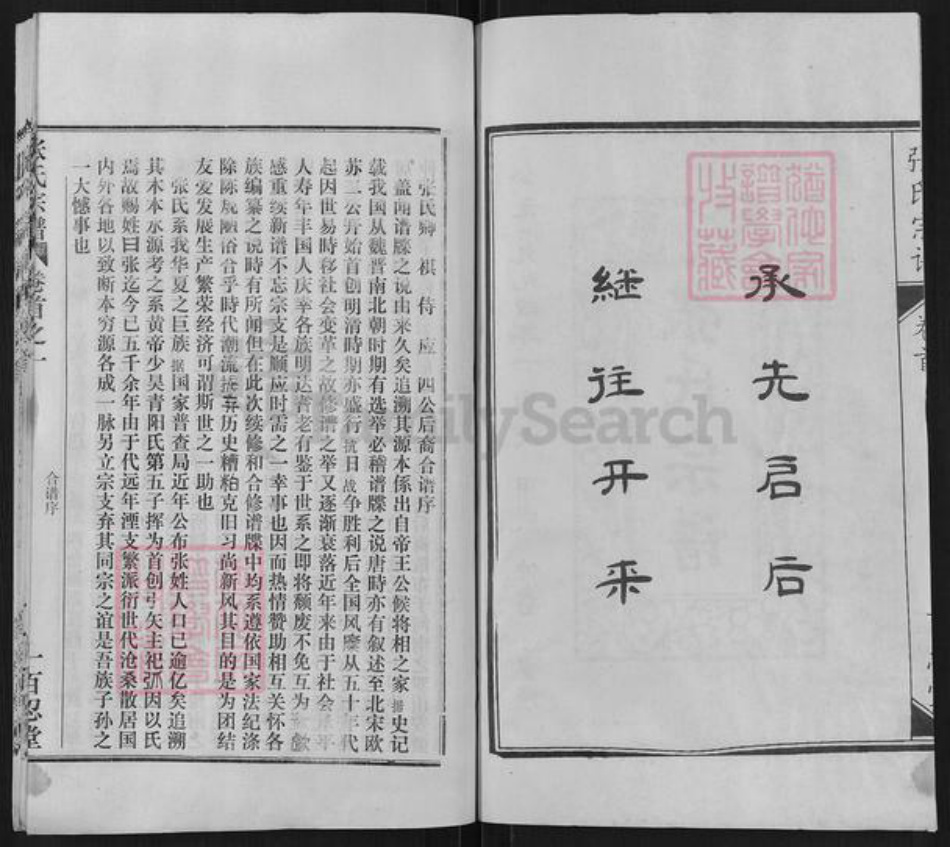 承先启后
继往开来
张氏宗谱
卷首
张氏卿祺侍应四公后裔合谱序
盖闻谱牒之说由来久矣追溯其源本係出自帝王公候将相之家据史记
载我国从魏晋南北朝时期有选举必稽谱牒之说唐時亦有叙述至北宋欧
苏二公开始首创明清時期亦盛行抗日战争胜利后全国风靡从五十年代
起因世易時移社会变革之故修谱之举又逐渐衰落近年来由于社会
人寿年丰国人庆幸各族明达耆老有鉴于世系之即将颓废不免互为
感重续新谱不忘宗支是顺应时需之一幸事也因而热情赞助相互关怀各
族编纂之说時有所闻但在此次续修和合修谱牒中均系遵依国家法纪涤
除陈规陋俗合乎時代潮流摈弃历史糟粕克旧习尚新风其目的是为团结
友爱发展生产繁荣经济可谓斯世之一助也
张氏系我华夏之巨族据国家普查局近年公布张姓人口已逾亿矣追溯
其木本水源考之系黄帝少昊青阳氏第五子挥为首创弓矢主祀弧因以氏
焉故赐姓曰张迄今已五千余年由于代远年湮支繁派衍世代沧桑散居国
内外各地以致断本穷源各成一脉另立宗支弃其同宗之谊是吾族子孙之
一大憾事也
张氏宗谱
卷首之一
合谱序
一
百忍堂